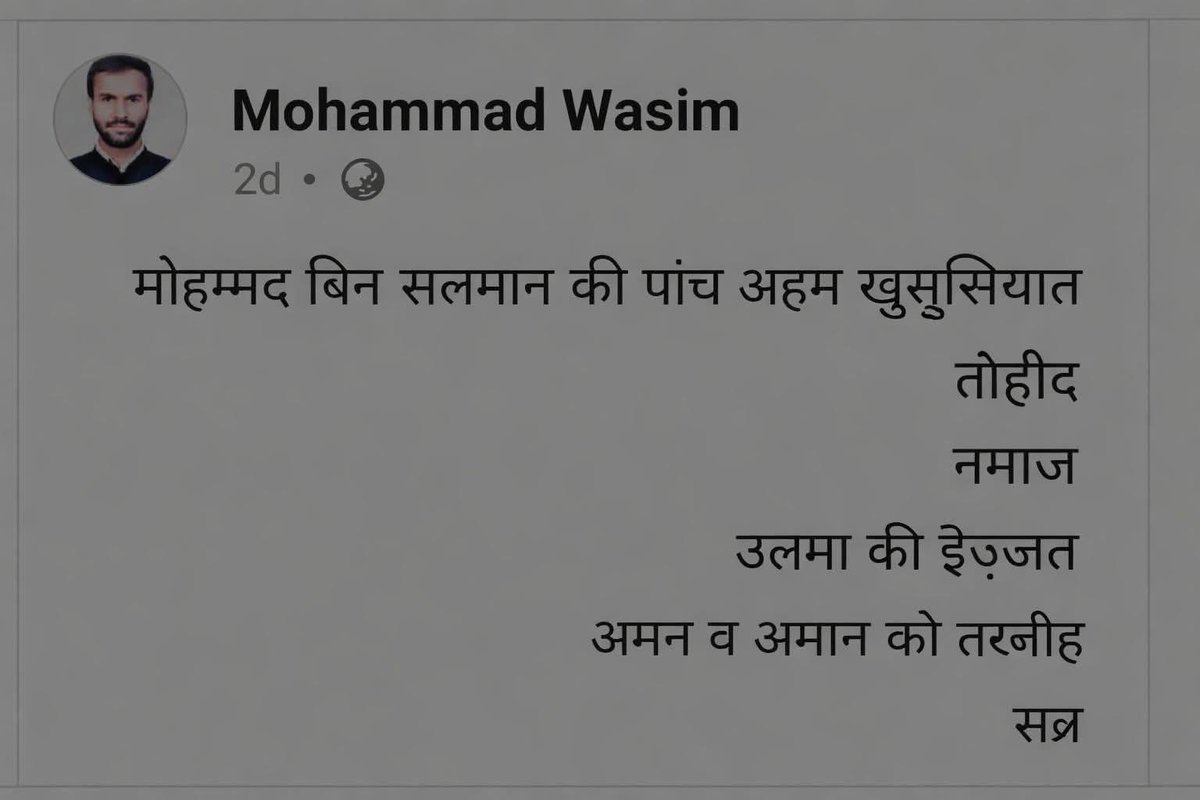 Mohammad Wasim
2d •
मोहम्मद बिन सलमान की पांच अहम खुसुसियात
तोहीद
नमाज
उलमा की इज़्जत
अमन व अमान को
सब्र